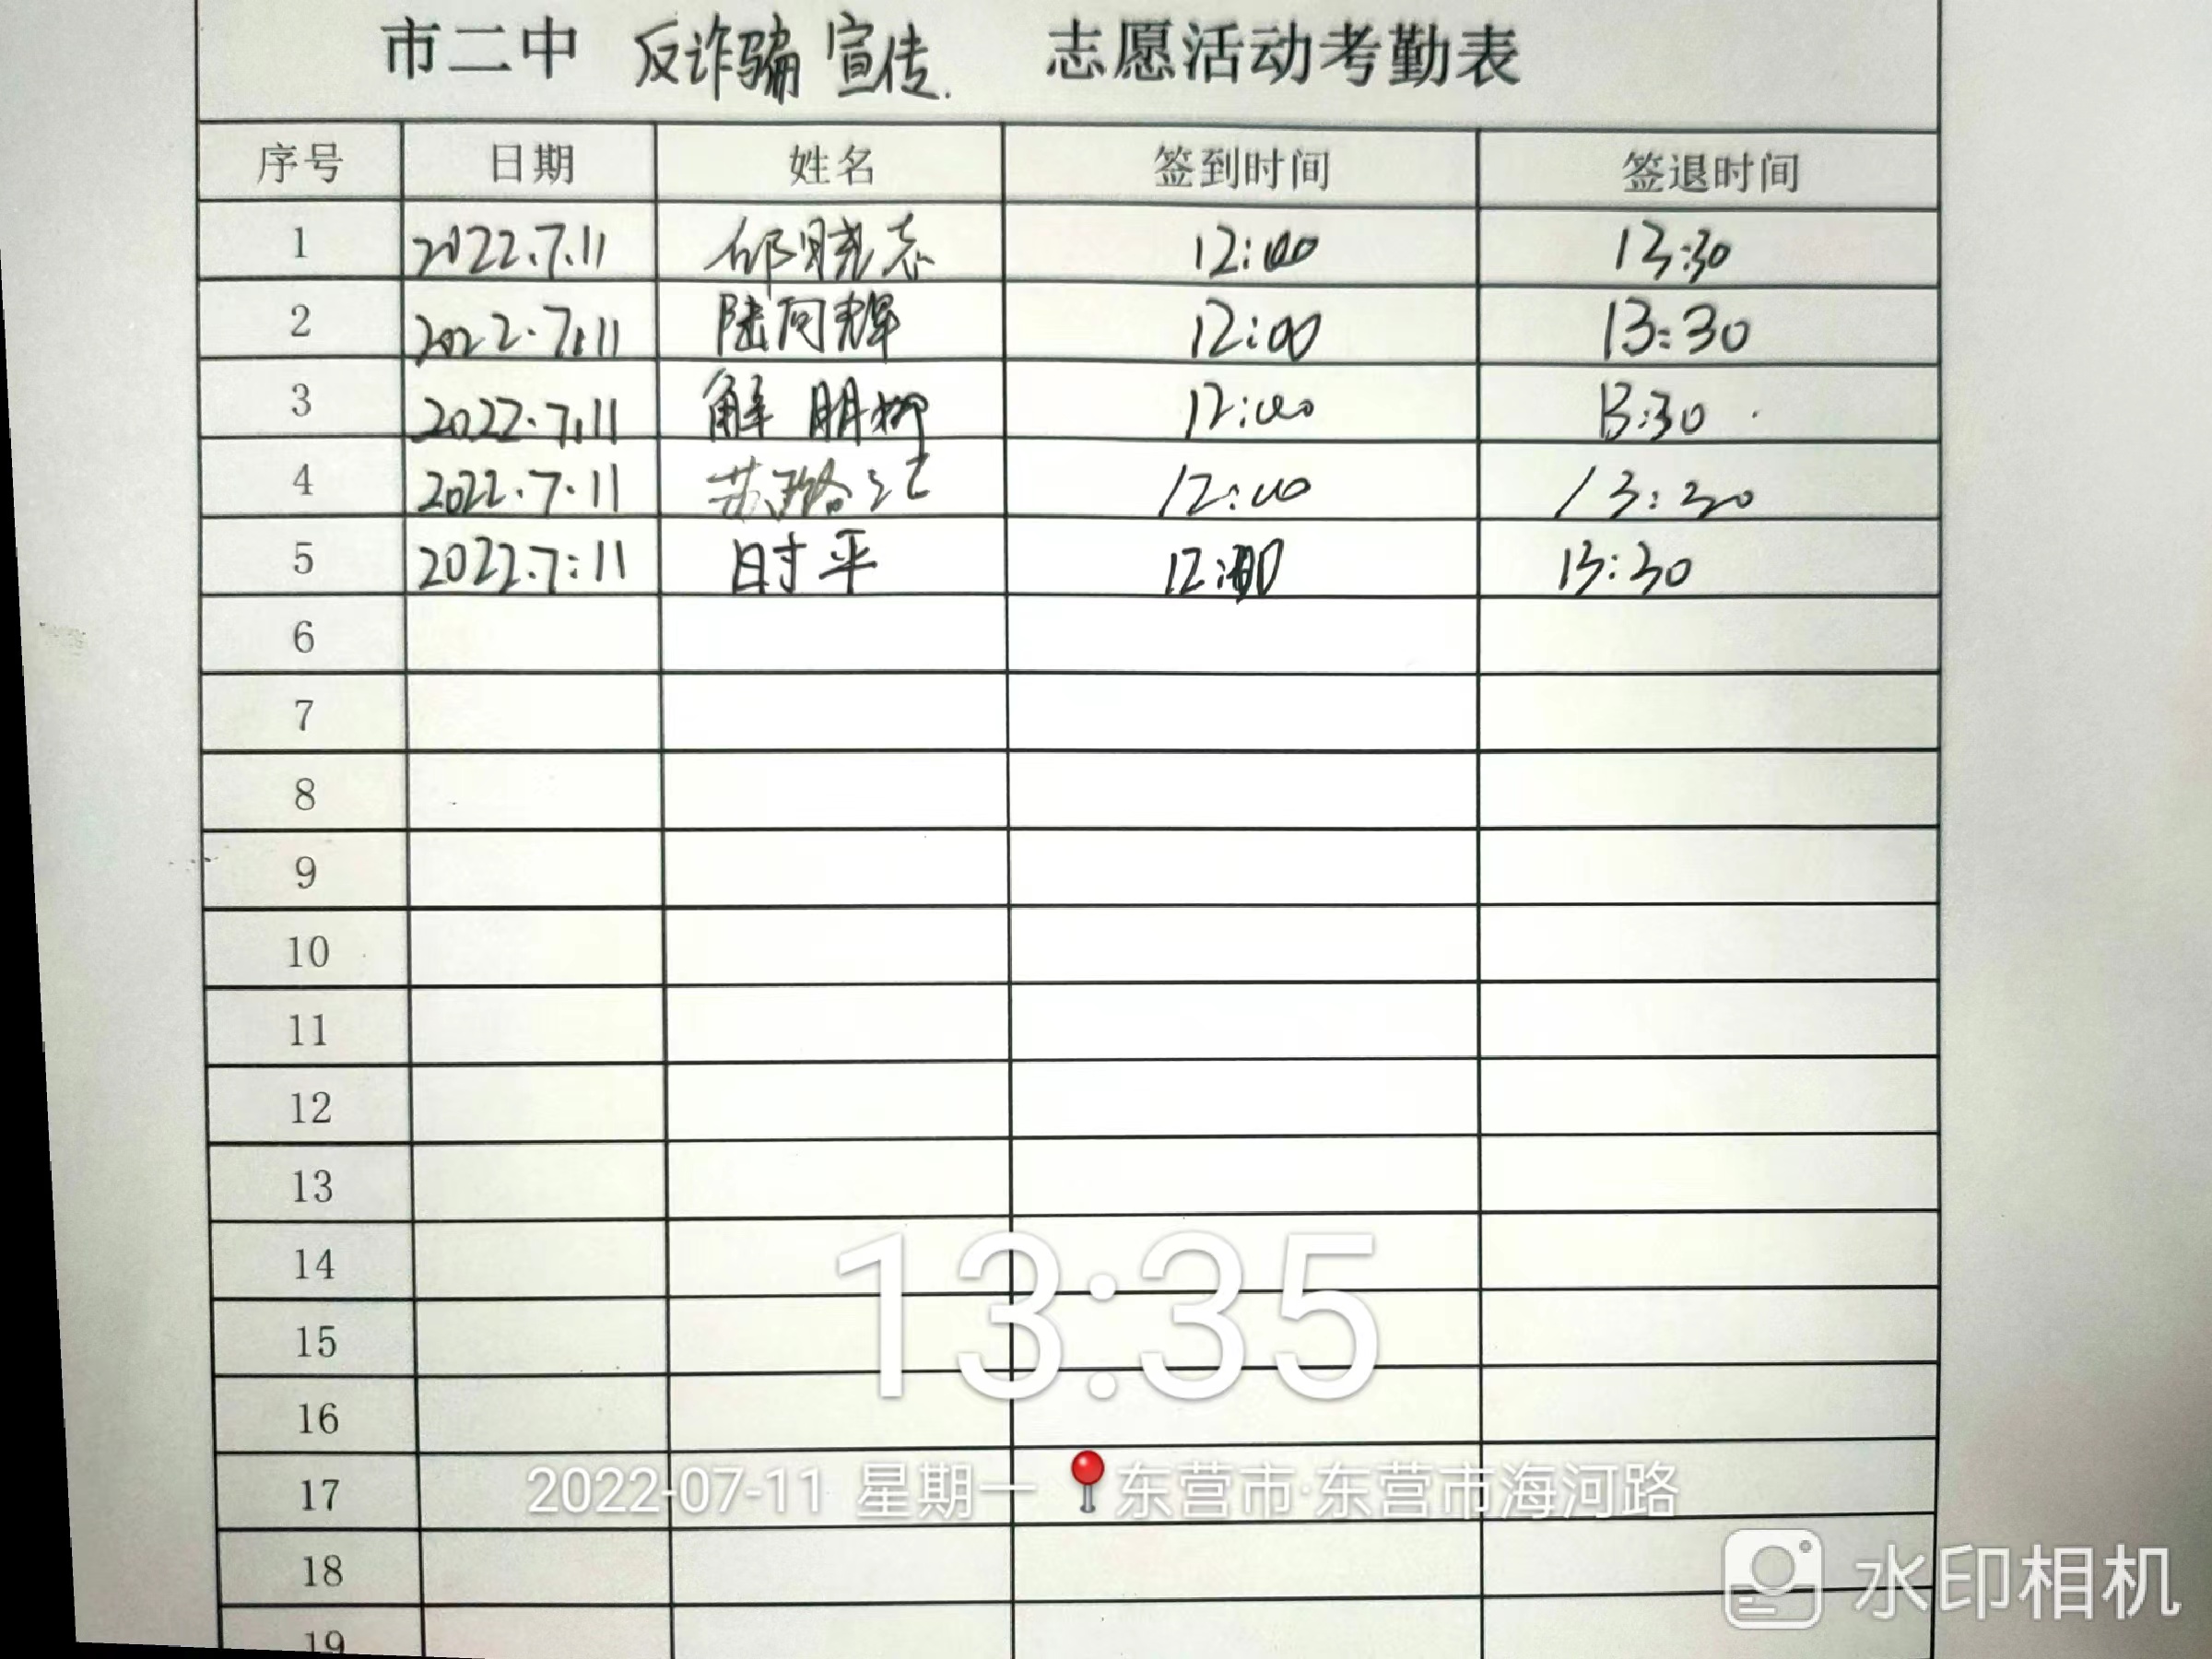 市二中 反诈骗宣传. 志愿活动考勤表
序号 日期 姓名 签到时间 签退时间
1 2022.7.11 邱晓志 12:00 13:30
2 2022.7.11 陆向辉 12:00 13:30
3 2022.7.11 解朋柳 12:00 13:30
4 2022.7.11 苏 12:00 13:30
5 2022.7:11 时平 12:00 13:30
6
7
8
9
10
11
12
13
14
15
16
17
18
19
13:35
2022-07-11 星期一 东营市·东营市海河路
水印相机